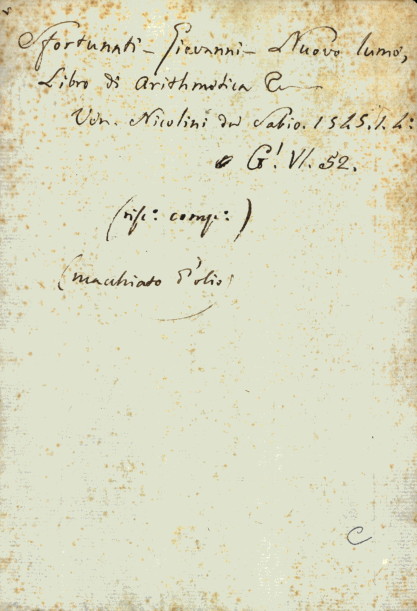 Sfortunati - Giovanni - Nuovo lume,
Libro di Arithmetica
Ven. Nicolini da Sabio. 1545.
G! VI. 52.
(macchiato d'olio)
C